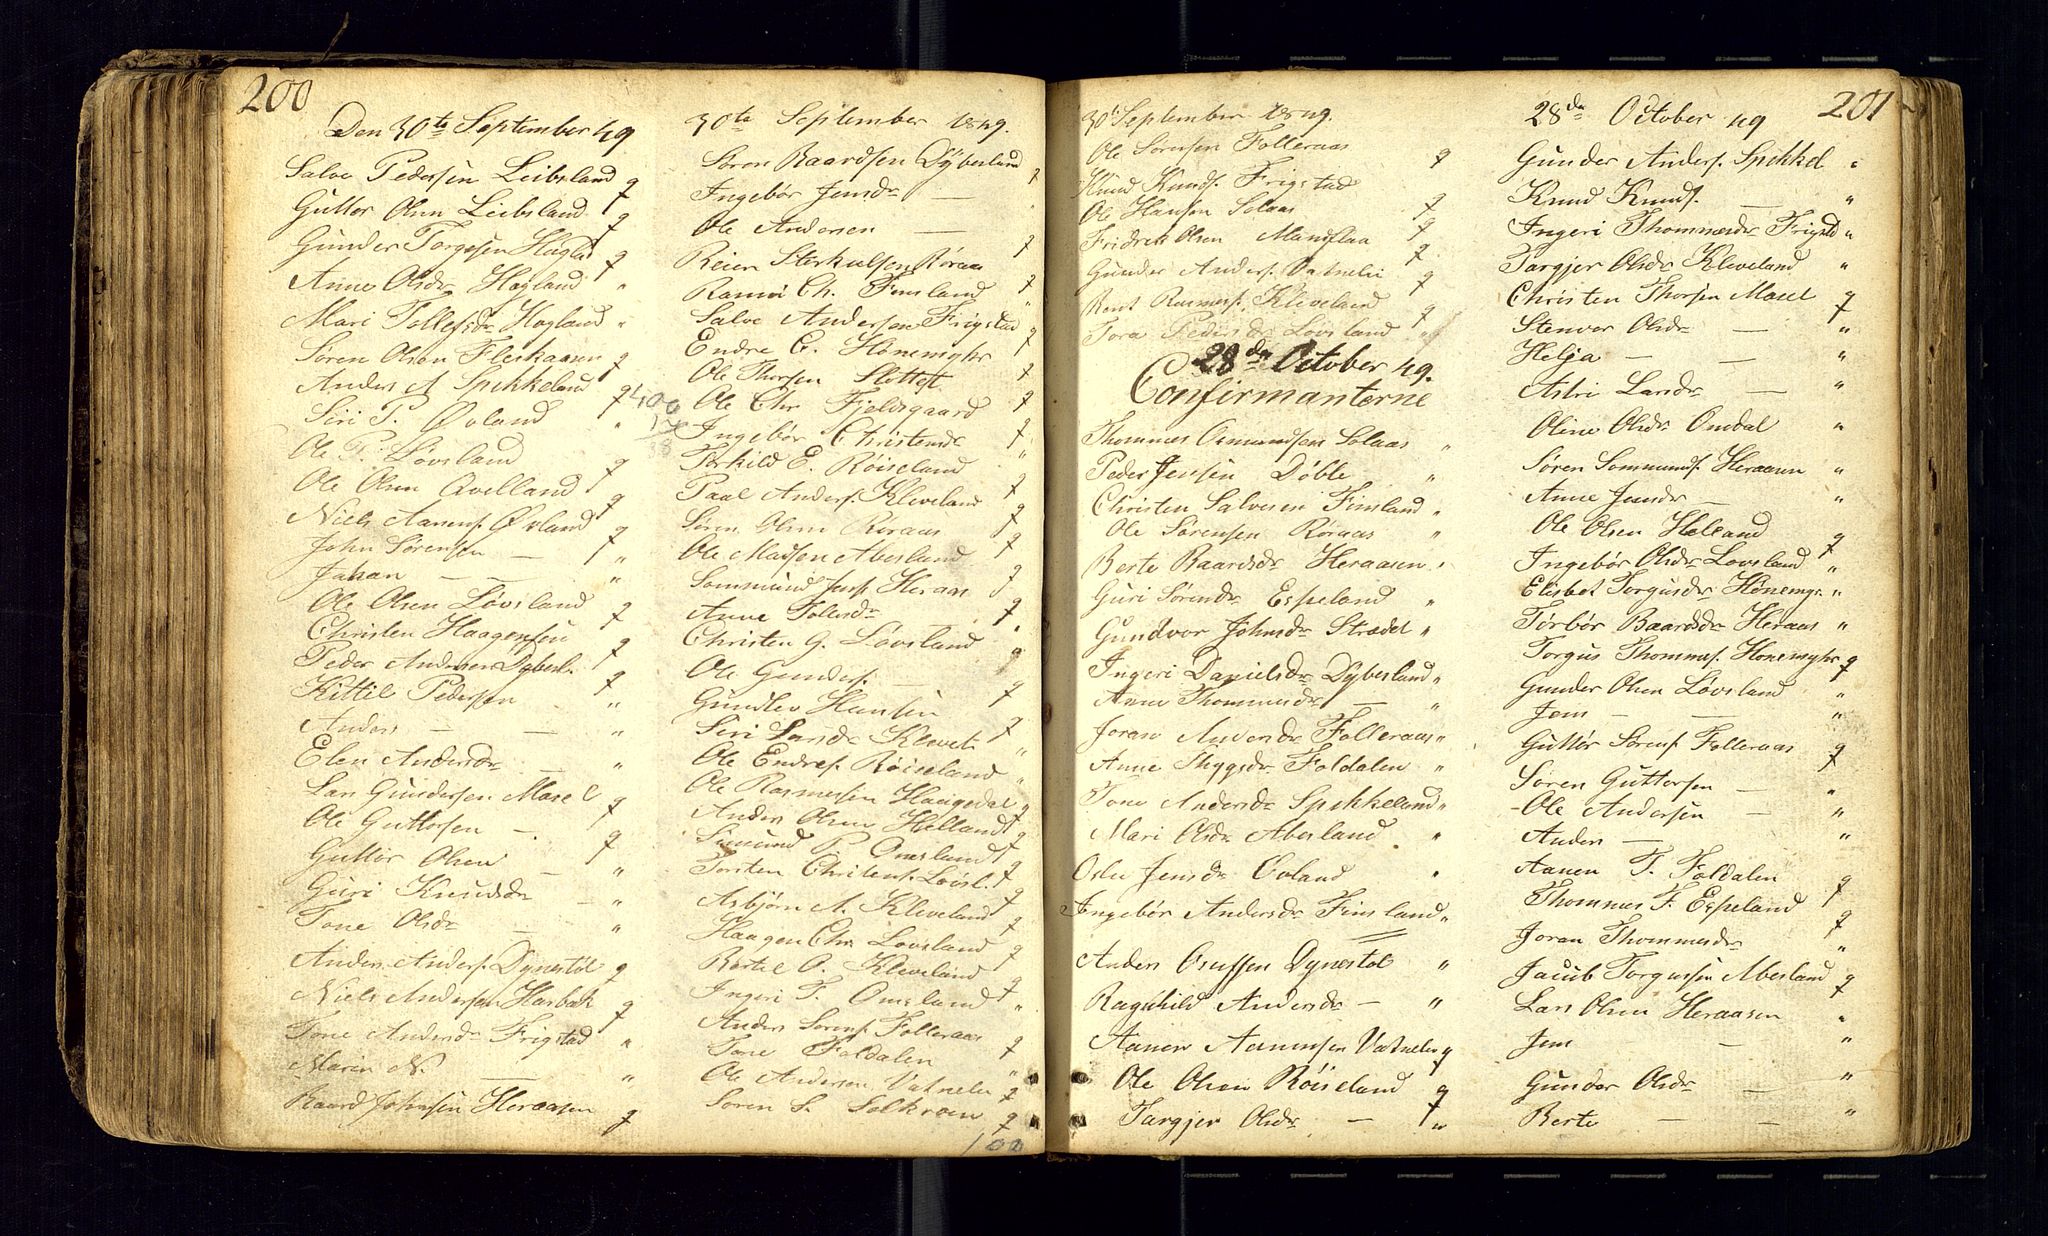 200
Den 30te September 49
Salve Pedersen Leibsland g
Guttor Olsen Leibsland g
Gunder Torgusen Hagland g
Anne Olsdr Hagland "
Mari Tollefsdr Hagland "
Søren Olsen Fleskaasen g
Anders A Spikkeland g
Siri P. Øvland "
Ole P. Løvsland g
Ole Olsen Qvelland g
Niels Aanens. Øvland g
John Sørensen — "
Johan — — "
Ole Olsen Løvsland g
Christen Haagensen g
Peder Andersen Dybesl. g
Kittil Pedersen "
Anders — — "
Elen Andersdr — "
Lars Gundersen Mosel g
Ole Guttorsen — g
Guttor Olsen "
Guri Knudsdr — "
Tone Olsdr — "
Anders Anders. Dynestøl g
Niels Andersen Harbak g
Tone Andersdr Frigstad "
Marin N. — "
Baard Johnsen Heraasen g
30te September 1849.
Søren Baardsen Dÿbesland g
Ingebör Jensdr —
Ole Andersen — g
Reier Sterkulsen Røraas
Ramoi Ch. Finsland g
Salve Andersen Frigstad g
Endre G. Hönemyhr g
Ole Thorsen Slottet g
Ole Chr Fjeldsgaard g
Ingebör Christensdr "
Torkild E. Røiseland g
Paal Anders. Kleveland g
Sören Olsen Roraas g
Ole Madsen Abesland g
Sommund Jens. Heraas g
Anne Tollesdr "
Christen G. Løvsland g
Ole Gunders. — g
Gundlev Hansen g
Siri Larsdr Klevel. "
Ole Endres. Røiseland
Ole Rasmusen Haugsdal g
Anders Olsen Helland g
Simund P. Omsland g
Torsten Christens. Løvsl. g
Asbjörn A. Kleveland g
Haagen Chr. Lovsland g
Bertel O. Kleveland g
Ingeri T. Omsland "
Anders Sorens. Folleraas g
Tone Foldalen "
Ole Andersen Vatneli g
Soren S. g
100
30t September 1849.
Ole Sørensen Folleraas g
Knud Knuds. Frigstad
Ole Hansen Solaas g
Fridrek Olsen Mandflaa g
Gunder Anders. Vatneli g
Bent Rasmus. Kleveland g
Tora Pedersdr Lovsland "
28de October 49.
Confirmanterne
Thommes Osmundsen Solaas "
Peder Jensen Döble "
Christen Salvesen Finsland "
Ole Sørensen Røraas "
Berte Baardsdr Heraasen "
Guri Sørensdr Espeland "
Gundvor Johnsdr Strædet "
Ingeri Danielsdr Dÿbesland "
Anne Thommesdr — "
Joran Andersdr Folleraas "
Anne Thygsdr Foldalen "
Tone Andersdr Spikkeland "
Mari Olsdr Abesland "
Oslu Jensdr Øvland "
Ingebör Andersdr Finsland "
Anders Dynestöl "
Ragnhild Andersdr — "
Aanen Aanensen Vatneli g
Ole Olsen Røiseland g
Targjer Olsdr — "
201
28de October 49
Gunder Anders. Spikkel "
Knud Knuds. — "
Ingeri Thommesdr Frigstd "
Targjer Olsdr Kleveland "
Christen Thorsen Mosel g
Stenvor Olsdr — "
Helja — — "
Astri Larsdr — "
Oline Olsdr Omdal "
Søren Sommunds. Heraasen "
Anne Jensdr — "
Ole Olsen Helland g
Ingebör Olsdr Lovsland "
Elisbet Torgusdr Hönemyr "
Torbör Baardsdr Heraas "
Torgus Thommes. Hönemyhr g
Gunder Olsen Løvsland "
Jens — — "
Guttor Sorens. Folleraas g
Søren Guttorsen — "
Ole Andersen — "
Anders — "
Aanen T. Foldalen g
Thommes F. Espeland g
Joran Thommesdr "
Jacob Torgussen Abesland g
Lars Olsen Heraasen "
Jens — "
Gunder Olsdr — "
Berte — — "